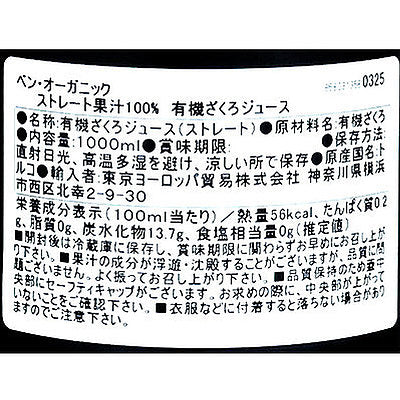 ベン・オーガニック
ストレート果汁100% 有機ざくろジュース
0325
●名称:有機ざくろジュース(ストレート)●原材料名:有機ざくろ
●内容量:1000ml●賞味期限: ●保存方法:
直射日光、高温多湿を避け、涼しい所で保存●原産国名:ト
ルコ●輸入者:東京ヨーロッパ貿易株式会社 神奈川県横浜
市西区北幸2-9-30
栄養成分表示(100ml当たり)/熱量56kcal、たんぱく質0.2
g、脂質0g、炭水化物13.7g、食塩相当量0g(推定値)
■開封後は冷蔵庫に保存し、賞味期限に関わらずお早めにお召し上が
り下さい。■果汁の成分が浮遊・沈殿することがございますが、品質に問
題ございません。よく振ってお召し上がり下さい。■品質保持のため蓋中
央部にセーフティキャップがございます。お求めの際に、中央部が上がって
いないことをご確認下さい。■衣服などに付着すると落ちない場合があり
ますのでご注意下さい。